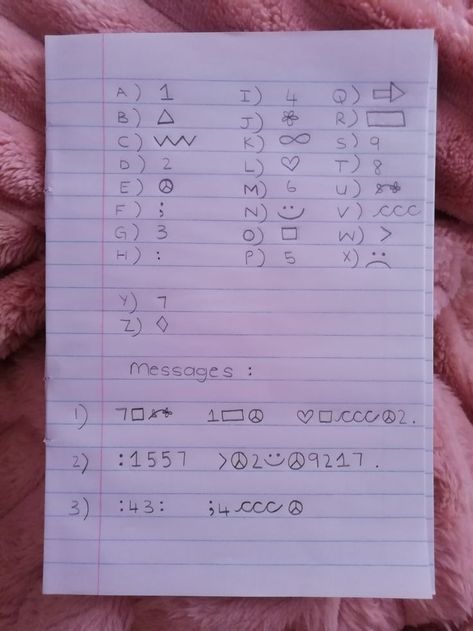 A) 1 I) 4 Q) ⇨
B) △ J) ✿ R) ▭
C) VVV K) ∞ S) 9
D) 2 L) ♡ T) 8
E) ☮ M) 6 U) ✿✿
F) ; N) :) V) ccc
G) 3 O) □ W) >
H) : P) 5 X) :(
Y) 7
Z) ◇
Messages :
1) 7□✿✿ 1▭☮ ♡□ccc☮2.
2) :1557 >☮2:)☮9217.
3) :43: ;4ccc☮